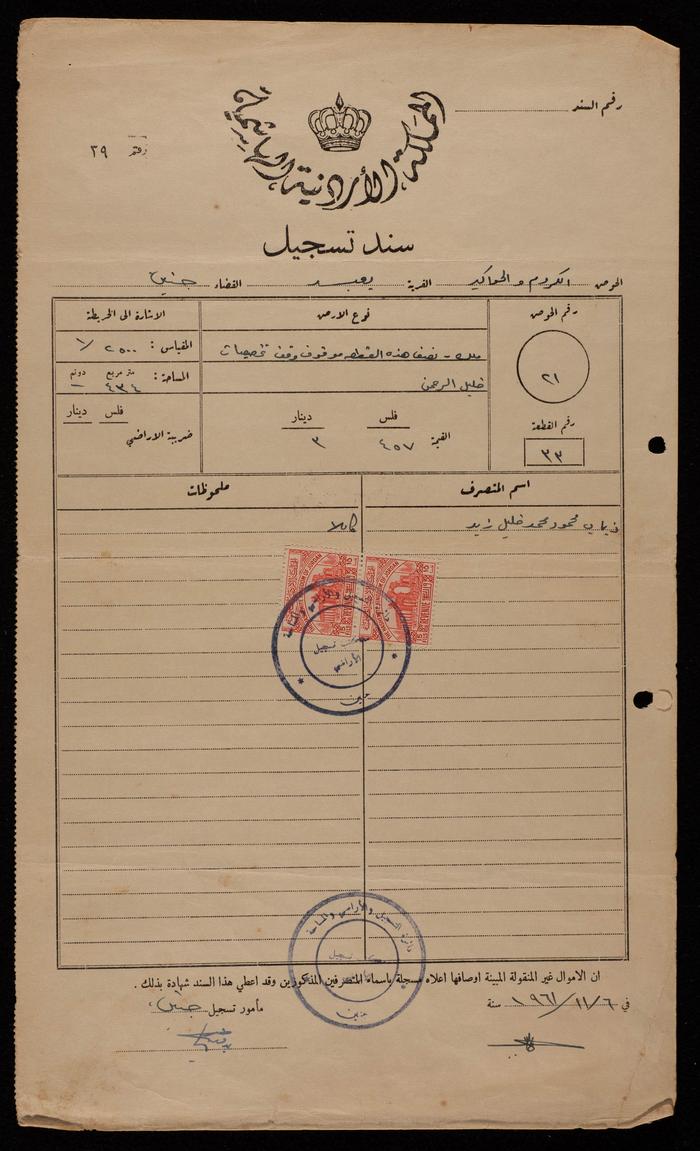 رقم السند
المملكة الأردنية الهاشمية
رقم ٢٩
سند تسجيل
الحوض الكروم والحواكير القرية يعبد القضاء جنين
رقم الحوض
٢١
رقم القطعة
٣٣
نوع الارض
ملك - نصف هذه القطعة موقوف وقف تخصيصات
خليل الرحمن
فلس دينار
القيمة ٤٥٧ ٣
الاشارة الى الخريطة
المقياس : ٢٥٠٠ / ١
متر مربع دونم
المساحة : ٤٣٤ ١
فلس دينار
ضريبة الاراضي
اسم المتصرف ملحوظات
محمود محمد خليل زيد كاملا
دائرة التسجيل والأراضي والمساحة
تسجيل
الأراضي
جنين
دائرة التسجيل والأراضي والمساحة
تسجيل
جنين
ان الاموال غير المنقولة المبينة اوصافها اعلاه مسجلة باسماء المتصرفين المذكورين وقد اعطي هذا السند شهادة بذلك .
في ٦/١١/١٩٦١ سنة مأمور تسجيل جنين